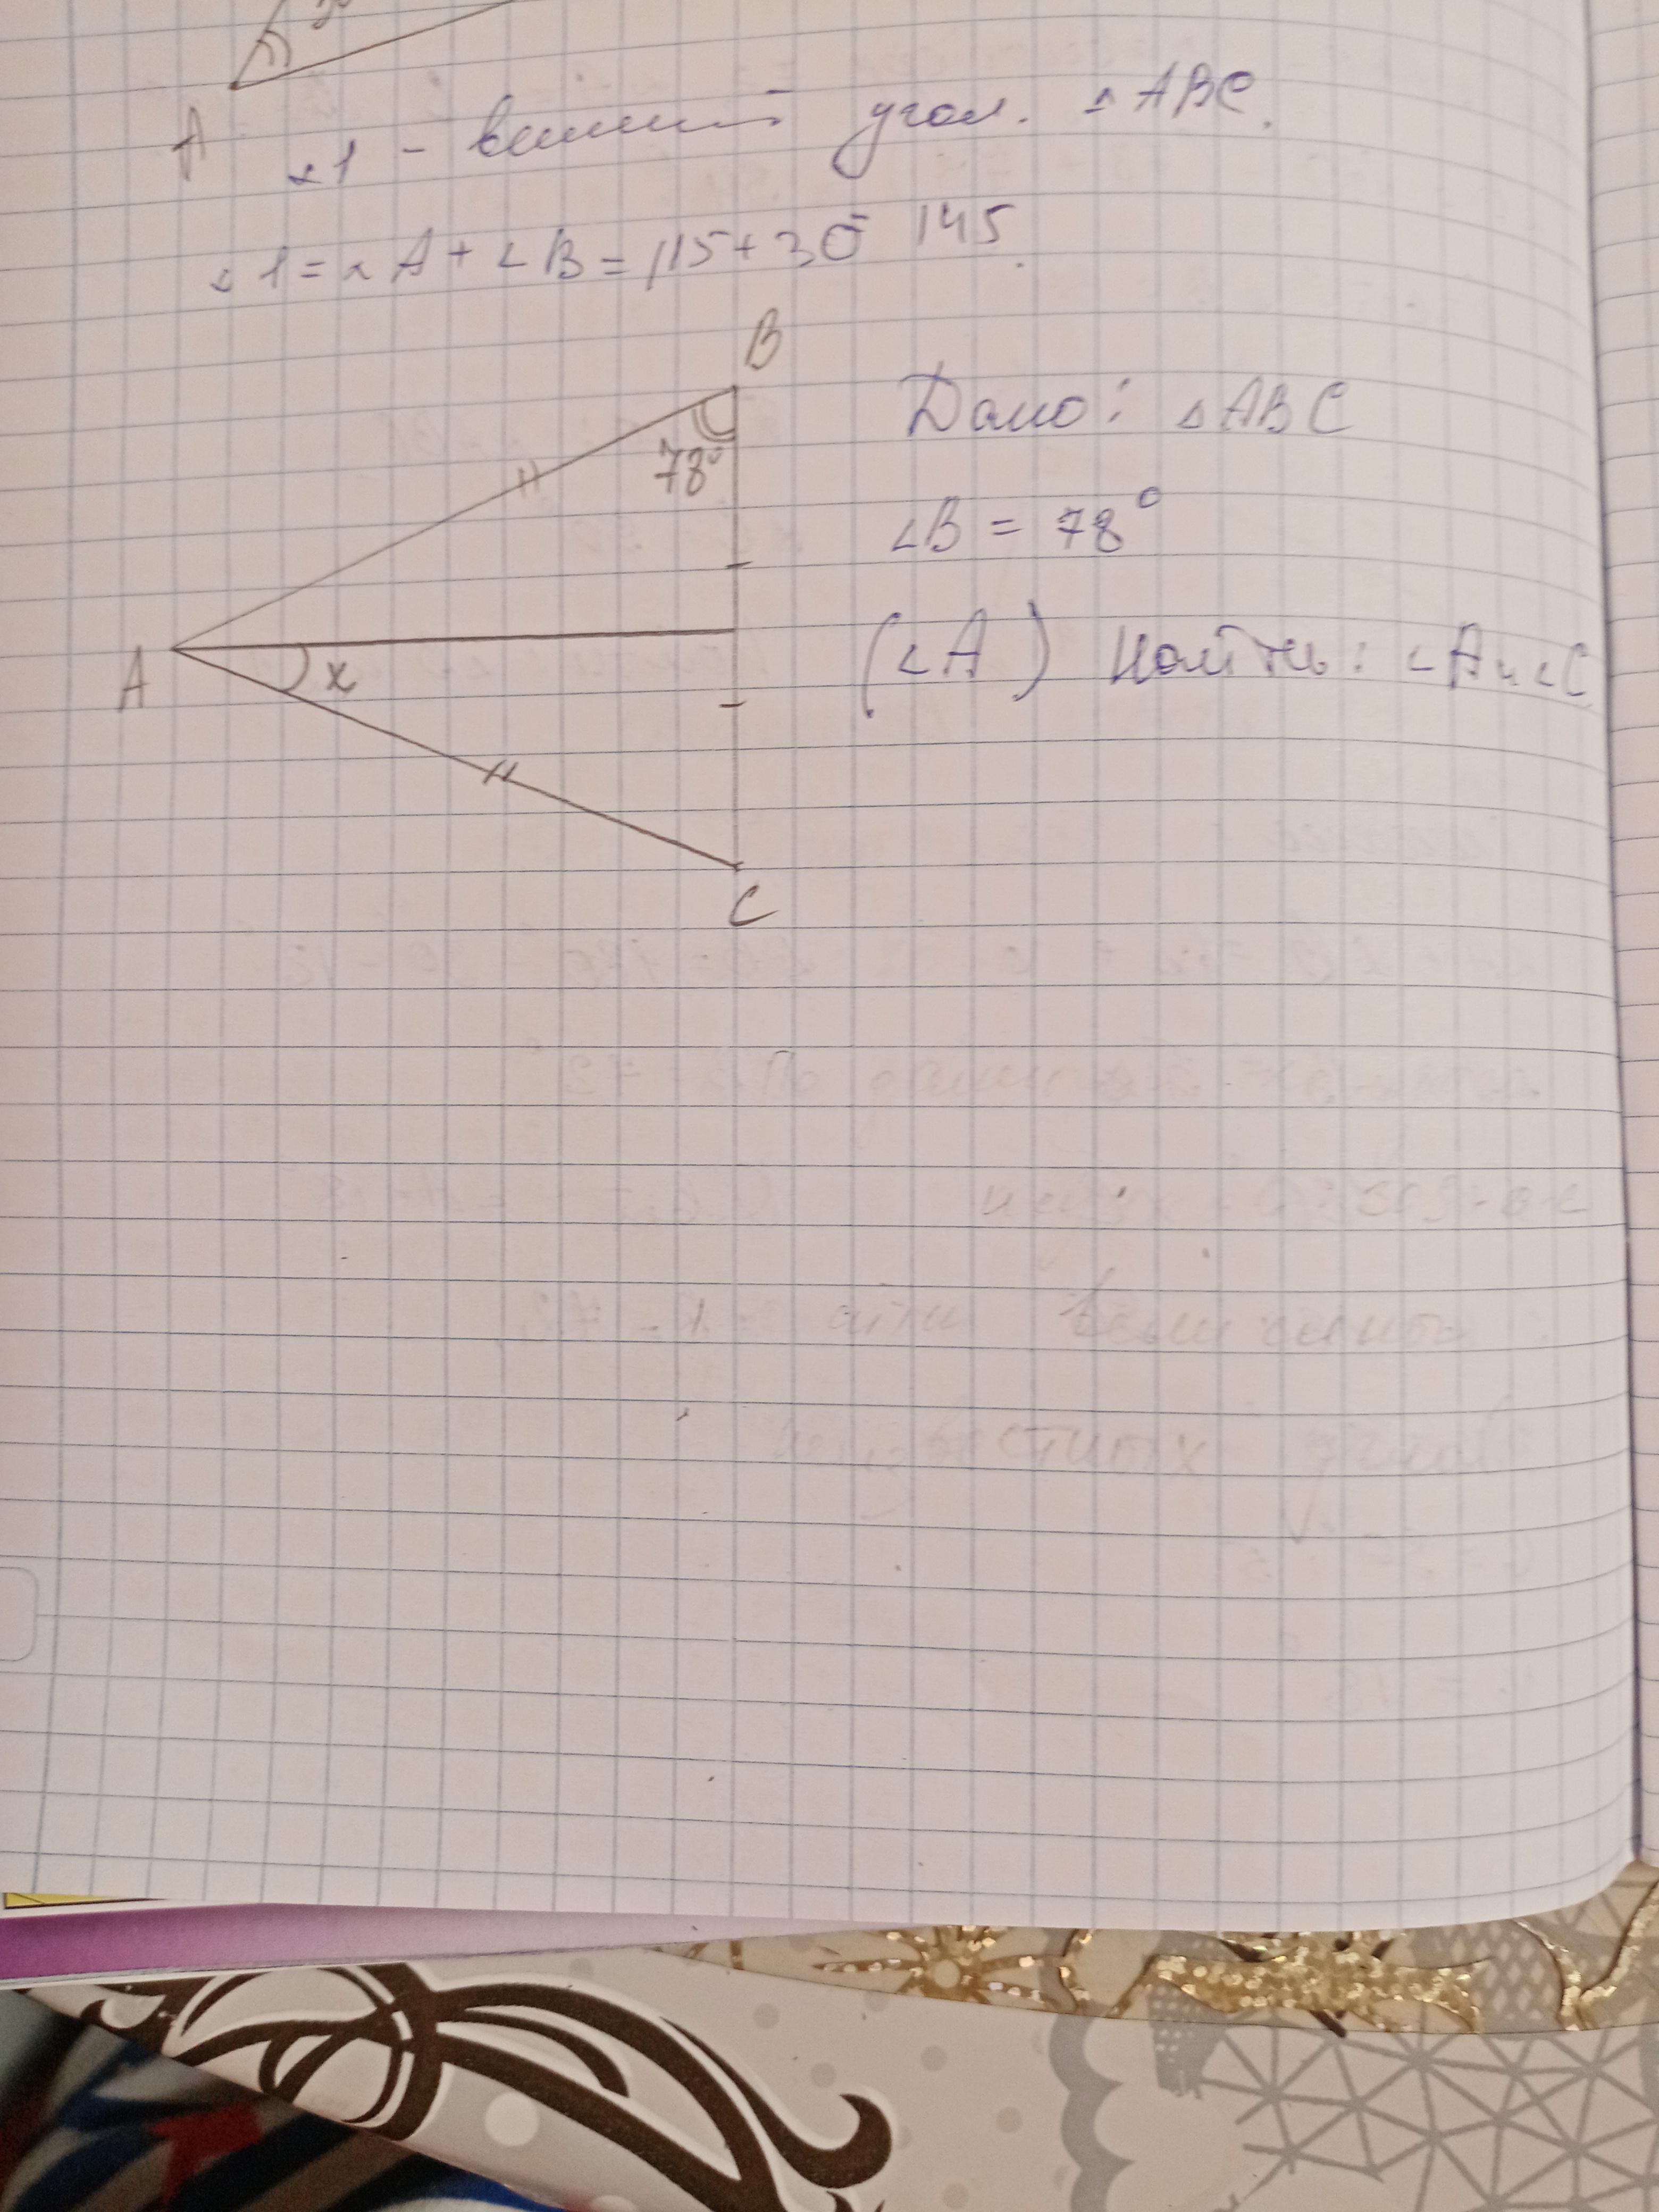 A
∠1 - внешний угол. △ABC.
∠1 = ∠A + ∠B = 115 + 30 = 145.
B
78°
A
x
C
Дано: △ABC
∠B = 78°
(∠A) Найти: ∠A и ∠C